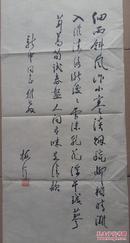 细雨斜风作小寒淡烟疏柳媚晴滩
入淮清洛渐漫漫雪沫乳花浮午盏蓼
茸蒿笋试春盘人间有味是清欢
同志